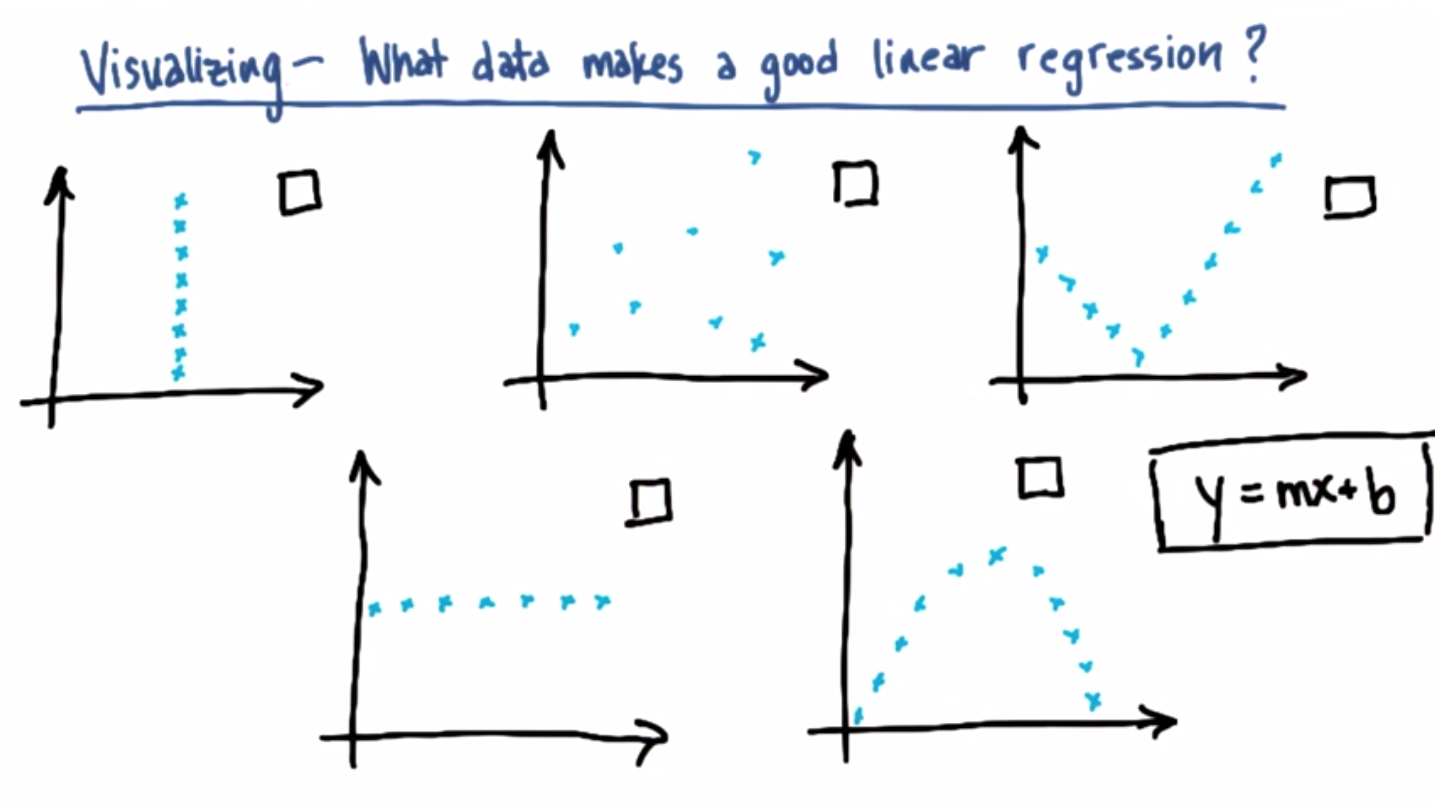 Visualizing- What data makes a good linear regression?
y = mx + b